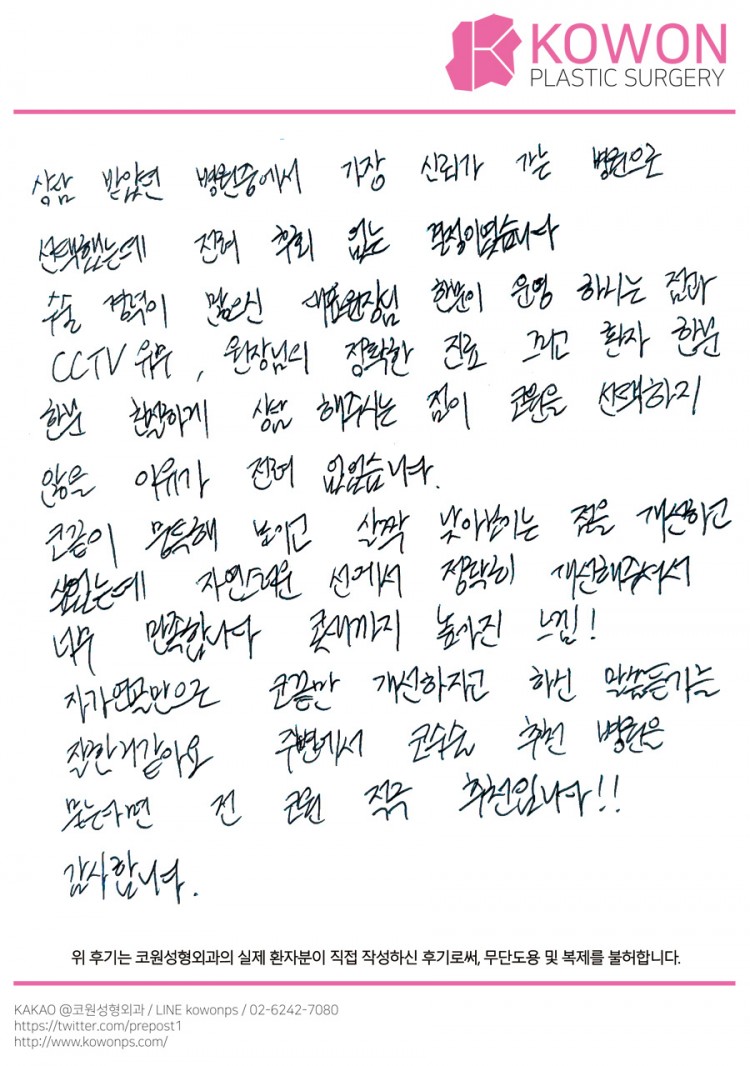 KOWON
PLASTIC SURGERY
상담 받았던 병원중에서 가장 신뢰가 가는 병원으로
선택했는데 전혀 후회 없는 결정이였습니다
수술 경력이 많으신 대표원장님 한분이 운영 하시는 점과
CCTV 유무, 원장님의 정확한 진료 그리고 환자 한분
한분 친절하게 상담 해주시는 점이 코원을 선택하지
않을 이유가 전혀 없었습니다.
코끝이 뭉툭해 보이고 살짝 낮아보이는 점을 개선하고
싶었는데 자연스러운 선에서 정확히 개선해주셔서
너무 만족합니다 콧대까지 높아진 느낌!
자가연골만으로 코끝만 개선하자고 하신 말씀듣기를
잘한거같아요 주변에서 코수술 추천 병원을
묻는다면 전 코원 적극 추천입니다!!
감사합니다.
위 후기는 코원성형외과의 실제 환자분이 직접 작성하신 후기로써, 무단도용 및 복제를 불허합니다.
KAKAO @코원성형외과 / LINE kowonps / 02-6242-7080
https://twitter.com/prepost1
http://www.kowonps.com/